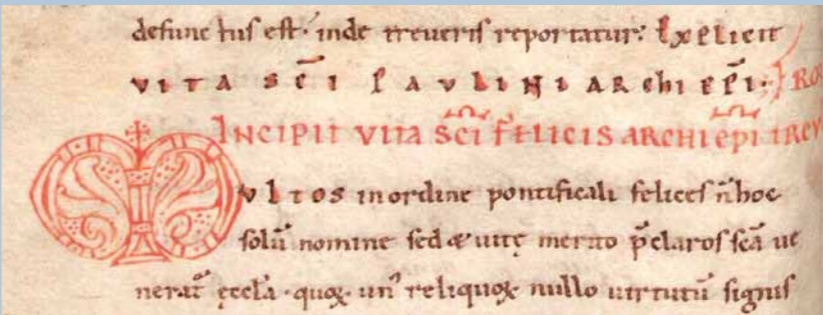 defunctus est. inde treueris reportatur: Explicit
VITA SC̄I PAVLINI ARChIEP̄I.
INCIPIT VITA SC̄I FELICIS ARCHIEP̄I TREV
MVLTOS in ordine pontificali felices n̄ hoc
solū nomine sed & uitę merito p̄claros sc̄a ue
nerat̄ ęccl̄a. quoꝝ. un᾽ reliquoꝝ nullo uirtutū signis